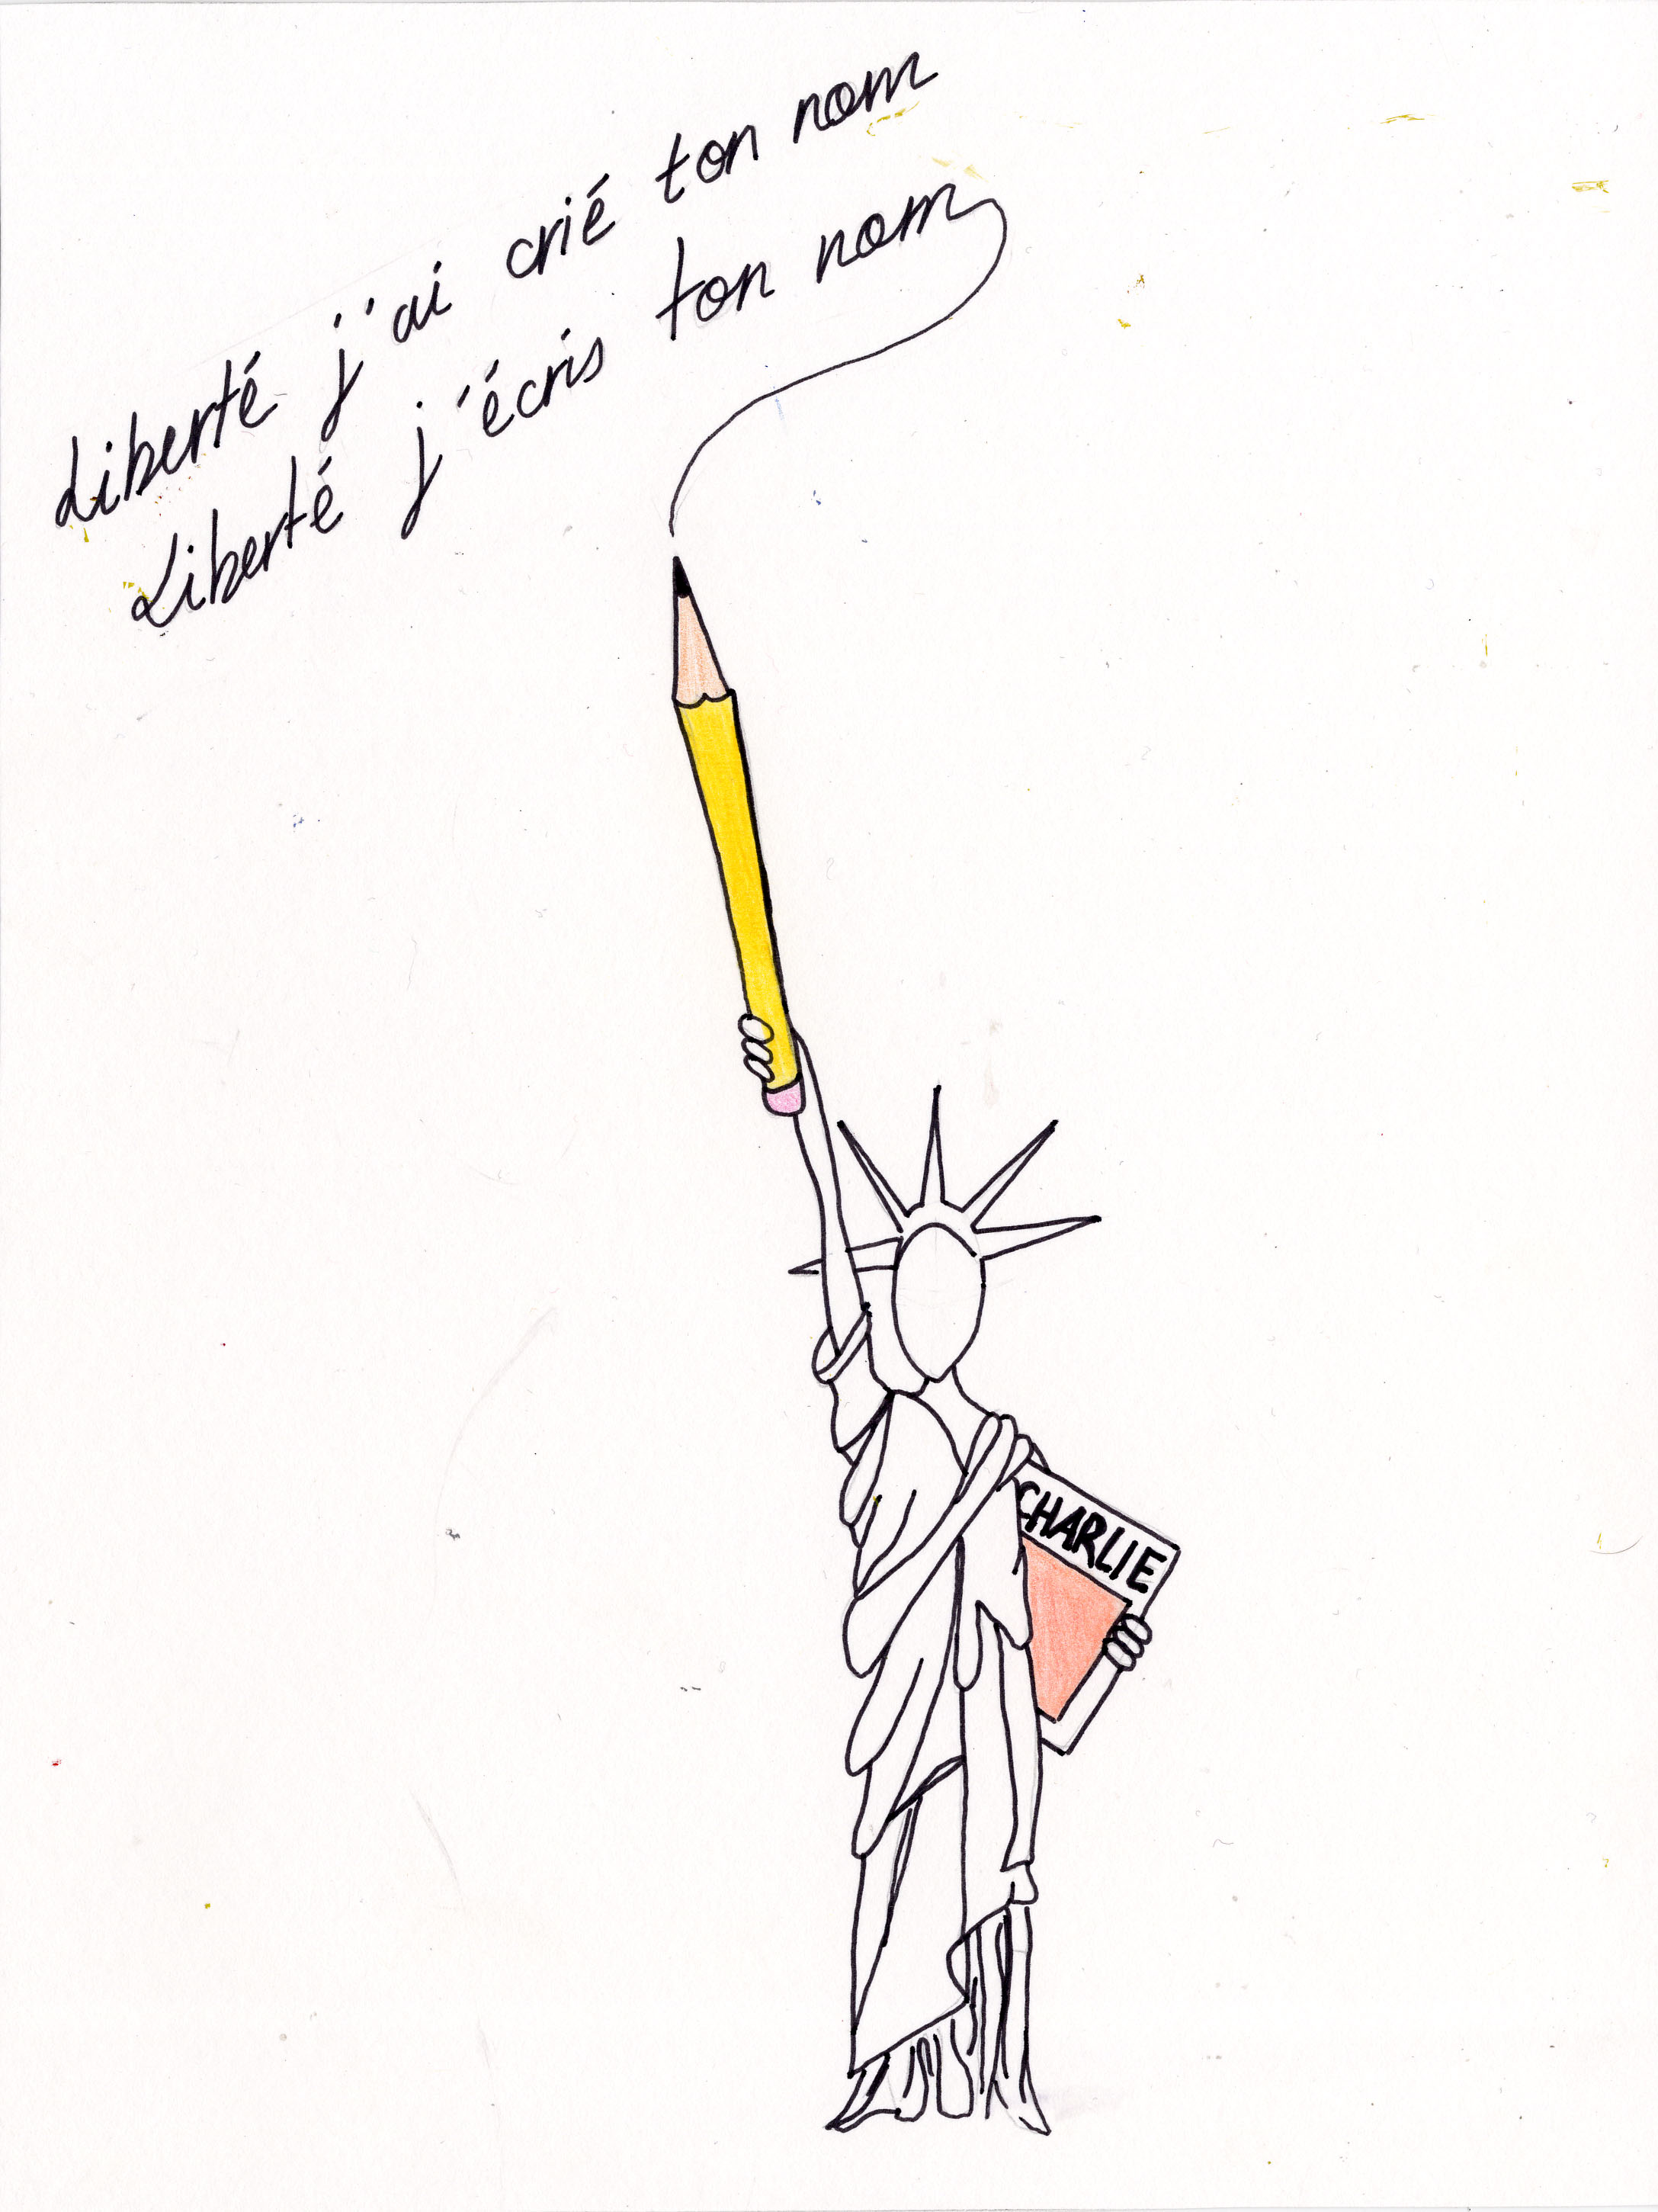 Liberté j'ai crié ton nom
Liberté j'écris ton nom
CHARLIE